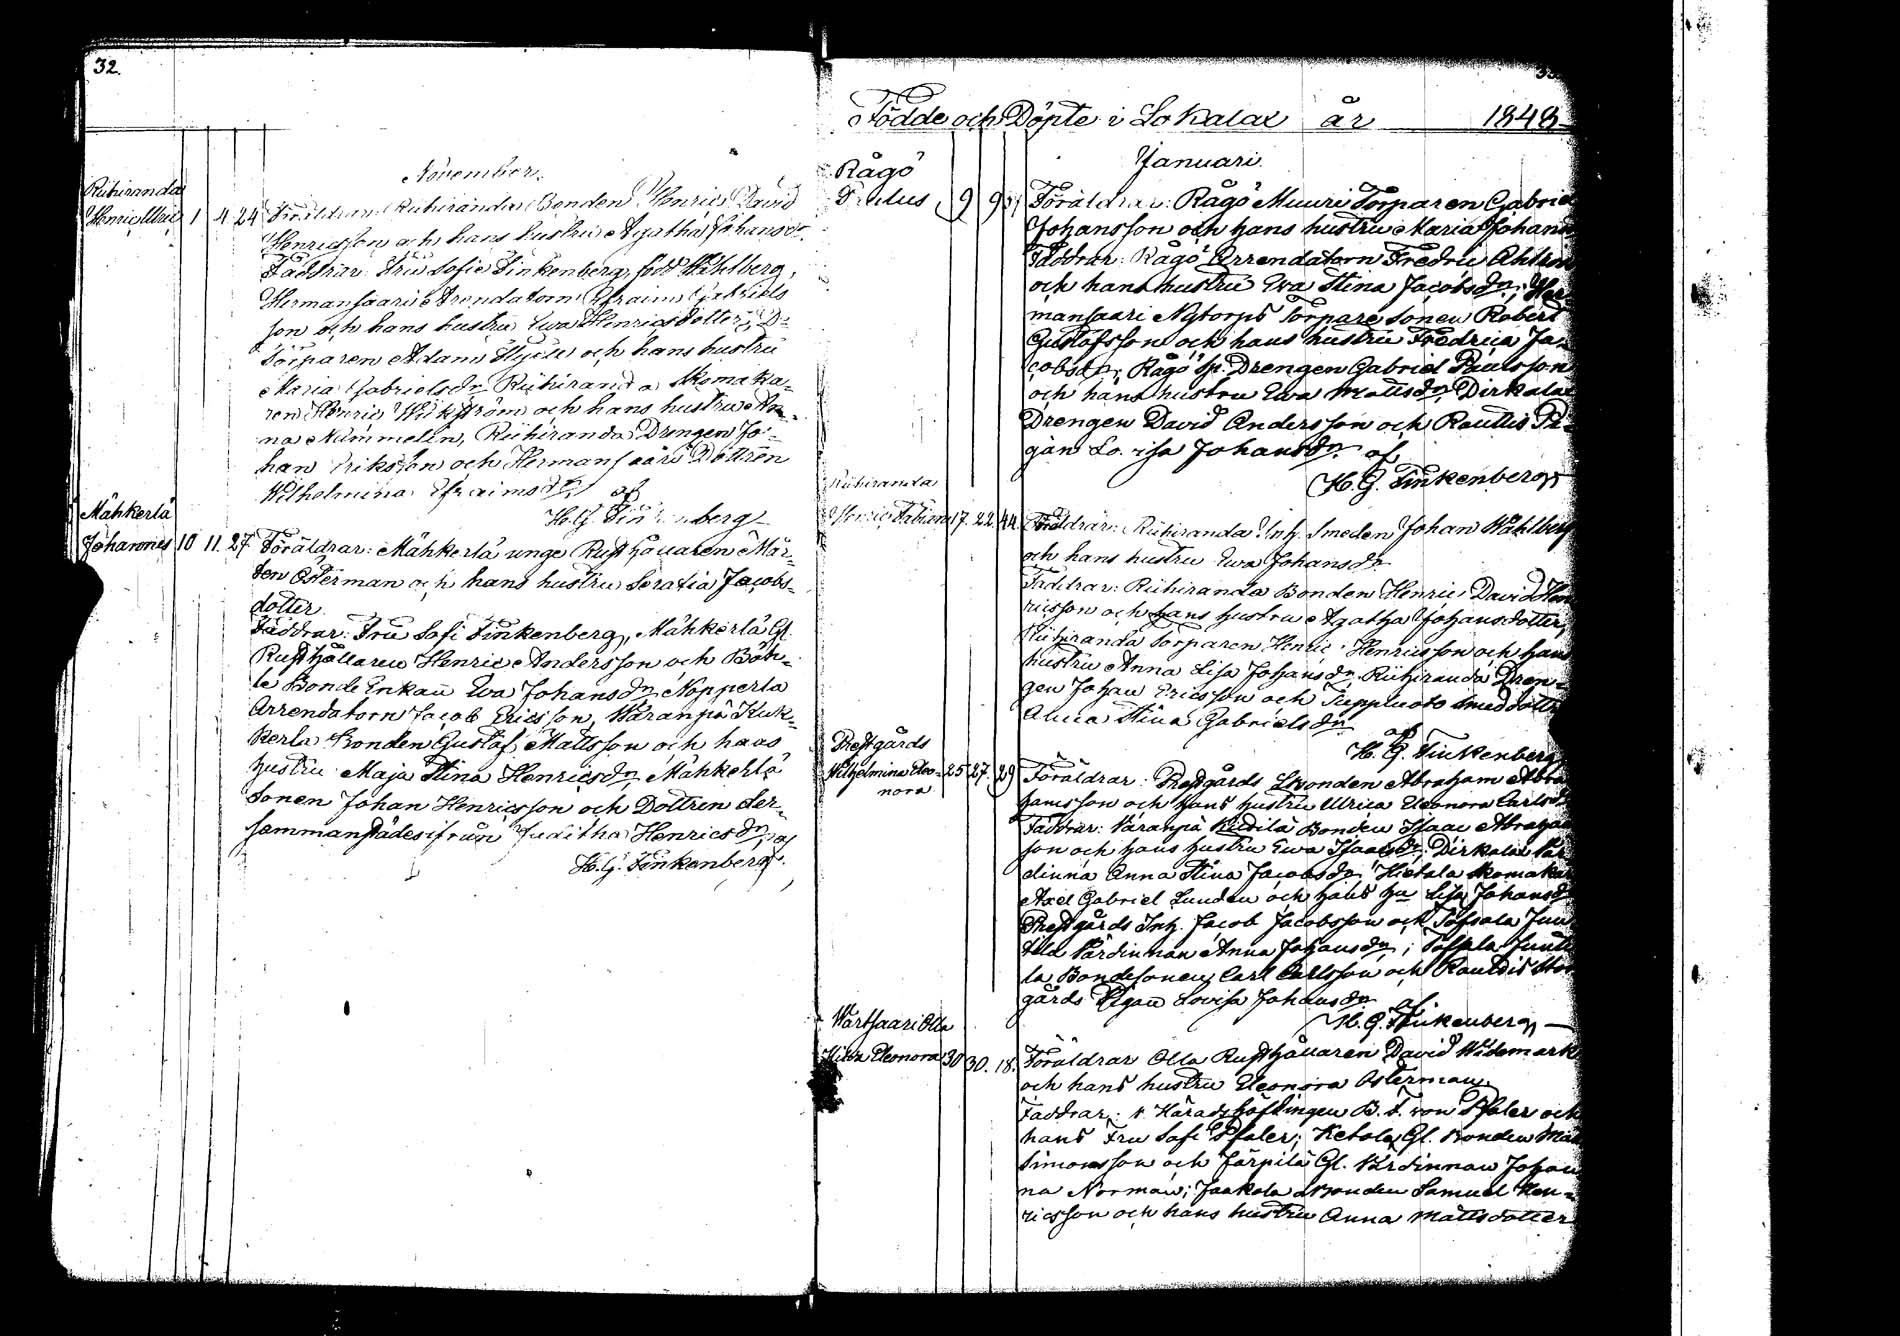 32.
November.
Riihiranda
Henric Ulric 1 4 24 Föräldrar: Riihiranda Bonden Henric David
Henricsson och hans hustru Agatha Johansdr.
Faddrar: Fru Sofie Finkenberg, född Wahlberg,
Hermansaari Arendatorn Efraim Gabriels
son och hans hustru Ewa Henricsdotter, Do
Torparen Adam och hans hustru
Maria Gabrielsdr Riihiranda Skomaka-
ren Henric Wikström och hans hustru An-
na Nummelin, Riihiranda Drengen Jo-
han Eriksson och Hermansaari Dottren
Wilhelmina Efraimsdr. af
H. G. Finkenberg
Mähkerlä
Johannes 10 11. 27 Föräldrar: Mähkerlä unge Rusthållaren Mår-
ten Österman och hans hustru Serafia Jacobs-
dotter.
Faddrar: Fru Sofi Finkenberg, Mähkerlä Gl.
Rusthållaren Henric Andersson och Böh-
le Bonde Enkan Ewa Johansdr, Nopperla
Arrendatorn Jacob Ericsson, Waranpä Kuk-
kerla Bonden Gustaf Mattsson och hans
hustru Maja Stina Henricsdr, Mähkerlä
Sonen Johan Henricsson och Dottren der-
sammanstädesifrån Juditha Henricsdr, af
H. G. Finkenberg.
Födde och Döpte i Lokalax år 1848
Januari
Rågö
9 9 Föräldrar: Rågö Muuri Torparen Gabriel
Johansson och hans hustru Maria Johans
Faddrar: Rågö Arrendatorn Fredric
och hans hustru Ewa Stina Jacobsdr; Her-
mansaari Nytorps Torpare Sonen Robert
Gustafsson och hans hustru Fredrica Ja-
cobsdr, Rågö Sp. Drengen Gabriel Paulsson
och hans hustru Ewa Mattsdr, Dirkalax
Drengen David Andersson och Rautis Pi-
gan Lovisa Johansdr. af
H. G. Finkenberg
Riihiranda
Henric Fabian 17. 22. 44. Föräldrar: Riihiranda Inh. Smeden Johan Wahlberg
och hans hustru Ewa Johansdr
Faddrar: Riihiranda Bonden Henric David Hen
ricsson och hans hustru Agatha Johansdotter,
Riihiranda Torparen Henric Henricsson och hans
hustru Anna Lisa Johansdr, Riihiranda Dren-
gen Johan Ericsson och Tuppluoto Smeddottr
Anna Stina Gabrielsdr
af
H. G. Finkenberg
Prestgårds
Wilhelmina Eleo-
nora 25 27. 29 Föräldrar: Prestgårds Bonden Abraham Abra
hamsson och hans hustru Ulrica Eleonora Carlsdr
Faddrar: Varanpä Bonden Isaac Abraham
son och hans hustru Ewa Isaacsdr; Dirkalax Vär
dinna Anna Stina Jacobsdr; Hietala Skomakar
Axel Gabriel Lunden och hans hu Lisa Johansdr
Prestgårds Inh. Jacob Jacobsson och Tofsala Jun
tila Värdinnan Anna Johansdr; Tofsala Junti
la Bondesonen Carl Carlsson och Rautis Stor
gårds Pigan Lovisa Johansdr af
H. G. Finkenberg
Wartsaari Olla
Eleonora 30 30. 18. Föräldrar Olla Rusthållaren David Widemark
och hans hustru Eleonora Österman.
Faddrar: v. Häradshöfdingen B. F. von Pfaler och
hans Fru Sofi Pfaler; Ketola Gl. Bonden Matt
Simonsson och Järpilä Gl. Värdinnan Johan
na Norman; Jaakola Bonden Samuel Hen-
ricsson och hans hustru Anna Mattsdotter